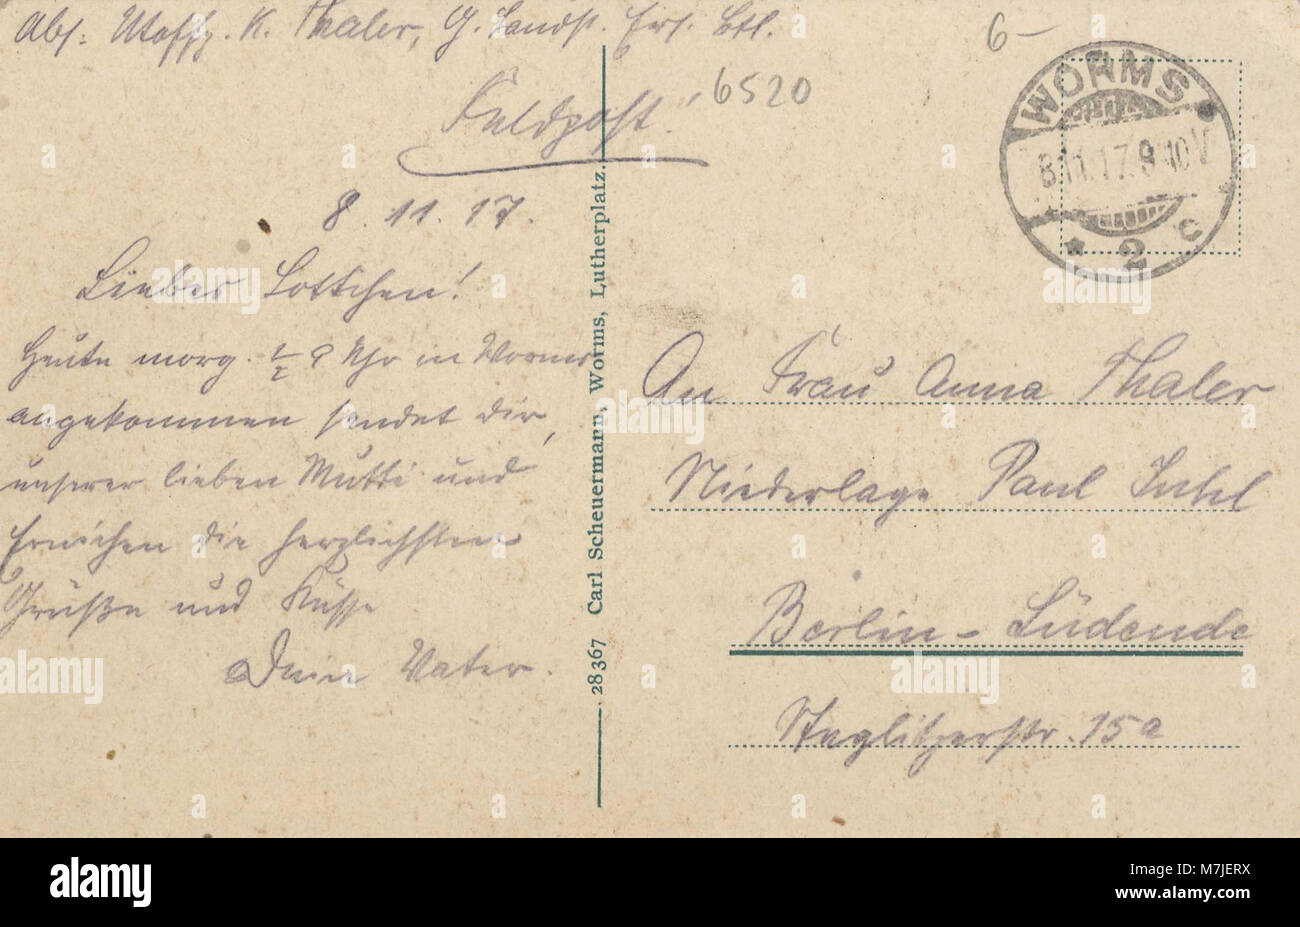 Abs: Utoffz. K. Thaler, G. Landst. Ers. Btl.
6–
6520
Feldpost!
WORMS
8.11.17.9-10V
* 2 c
8. 11. 17.
Liebes Lottchen!
Heute morg. ½ 9 Uhr in Worms
angekommen sendet dir,
unserer lieben Mutti und
die herzlichsten
Grüße und Küsse
Dein Vater.
28367 Carl Scheuermann, Worms, Lutherplatz.
An Frau Anna Thaler
Niederlage Paul
Berlin-Südende
Steglitzerstr. 15a
alamy
Image ID: M7JERX
www.alamy.com